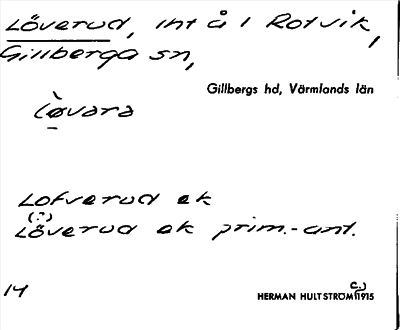 Löverud, int å i Rotvik,
Gillberga sn,
Gillbergs hd, Värmlands län
Lòvara
Lofverud ek
(?)
Löverud ek prim.-ant.
14
HERMAN HULTSTRÖM (c.) 1915